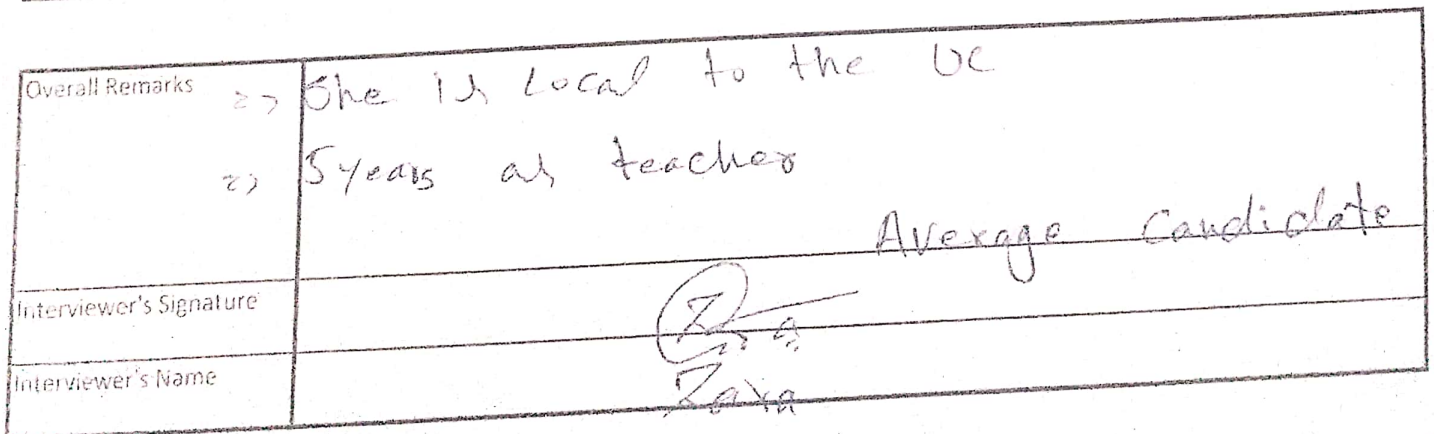 Overall Remarks
=> She is Local to the UC
=> 5 years as teacher
Average Candidate
Interviewer's Signature
Interviewer's Name
Zara